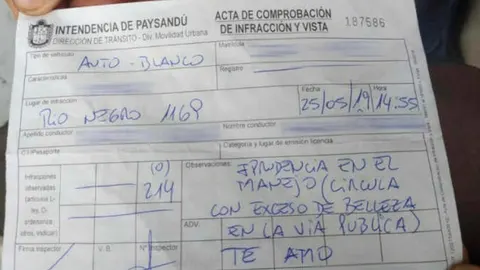 INTENDENCIA DE PAYSANDÚ
DIRECCIÓN DE TRÁNSITO - Div. Movilidad Urbana
ACTA DE COMPROBACIÓN
DE INFRACCIÓN Y VISTA
187586
Tipo de vehículo
AUTO - BLANCO
Matrícula
Características
Registro
Lugar de infracción
RIO NEGRO 1169
Fecha
25/05/19
Hora
14:55
Apellido conductor
Nombre conductor
C.I./Pasaporte
Categoría y lugar de emisión licencia
Infracciones
observadas
(artículos L-
les, O.
ordenanza,
otros, indicar)
(O)
214
Observaciones:
IPRUDENCIA EN EL
MANEJO (CIRCULA
CON EXCESO DE BELLEZA
ADV.
EN LA VIA PUBLICA)
TE AMO
Firma inspector
V. B.
Nº Inspector